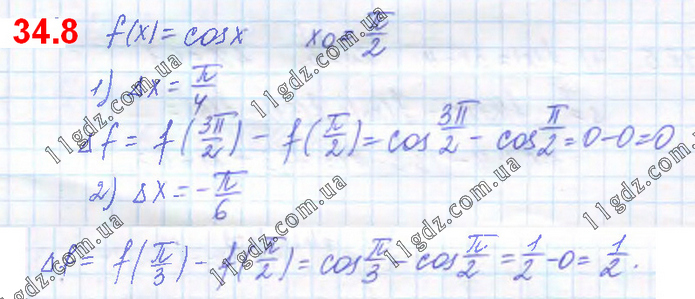 34.8 f(x) = cosx x₀ = π/2
1) Δx = π/4
Δf = f(3π/2) - f(π/2) = cos 3π/2 - cos π/2 = 0 - 0 = 0
2) Δx = -π/6
Δf = f(π/3) - f(π/2) = cos π/3 - cos π/2 = 1/2 - 0 = 1/2.
11gdz.com.ua
11gdz.com.ua
11gdz.com.ua
11gdz.com.ua
11gdz.com.ua